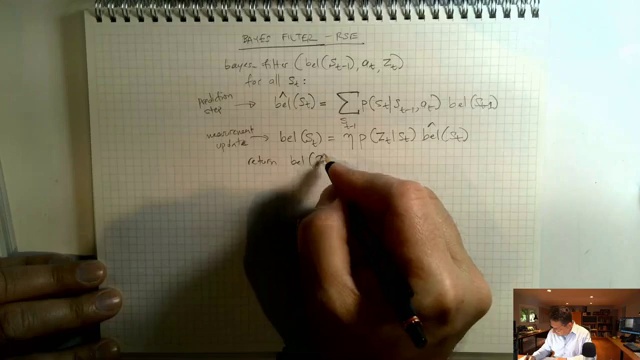 BAYES FILTER - RSE
bayes filter (bel(S_{t-1}), a_t, Z_t)
for all S_t:
prediction step → bel^(S_t) = ∑_{S_{t-1}} p(S_t | S_{t-1}, a_t) bel(S_{t-1})
measurement update → bel(S_t) = η p(Z_t | S_t) bel^(S_t)
return bel(